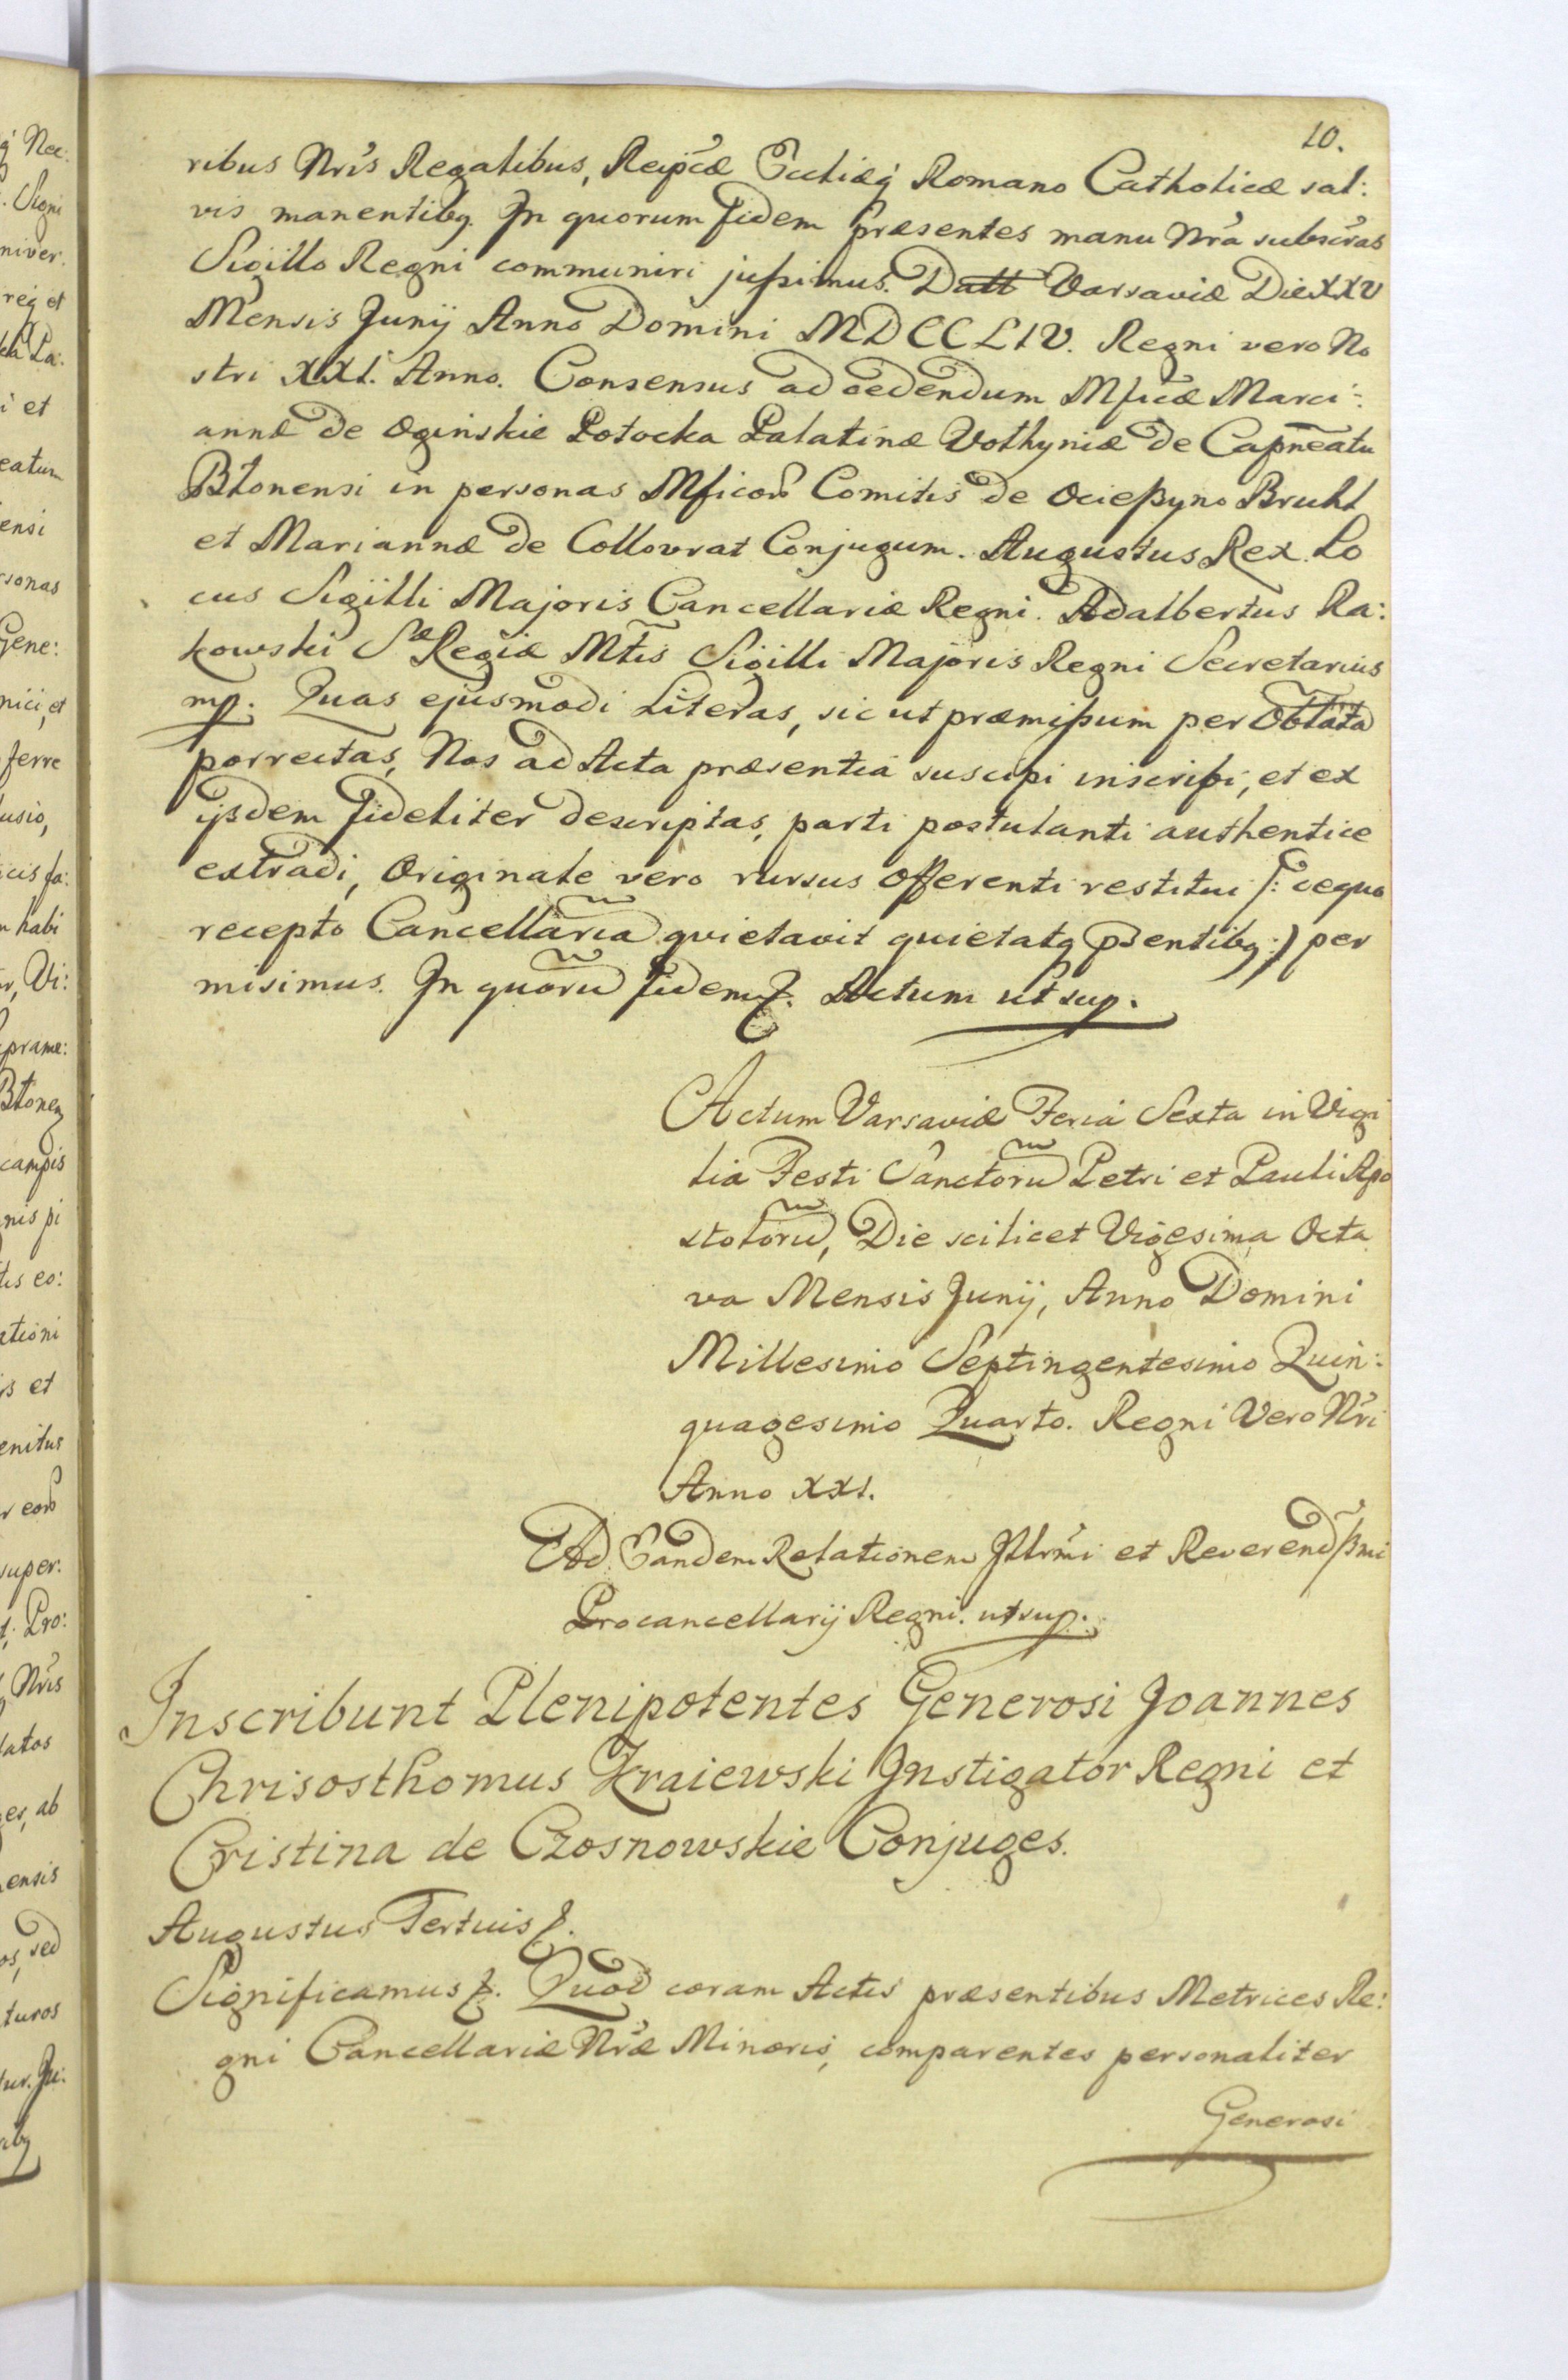 10.
ribus Nr̃is Regalibus, Reip̃cæ Eccliæq́ Romano Catholicæ sal:
vis manentibq. In quorum fidem præsentes manu Nr̃a subscr̃as
Sigillo Regni communiri jussimus. Datt Varsaviæ Die XXV
Mensis Junij Anno Domini MDCCLIV. Regni vero No
stri XXI. Anno. Consensus ad cedendum Mficæ Marci:
annæ de Oginskie Potocka Palatinæ Volhyniæ de Capñeatu
Błonensi in personas Mficorũ Comitis de Ocieszyno Bruhl
et Mariannæ de Collovrat Conjugum. Augustus Rex. Lo
cus Sigilli Majoris Cancellariæ Regni. Adalbertus Ra:
kowski Sæ Regiæ Mt̃is Sigilli Majoris Regni Secretarius
mp. Quas ejusmodi Literas, sic ut præmissum per Oblata
porrectas, Nos ad Acta præsentia suscipi inscribi, et ex
ijsdem fideliter descriptas, parti postulanti authentice
extradi, Originale vero rursus Offerenti restitui /: de quo
recepto Cancellaria quietavit quietatq p̃sentibq :/ per
misimus. In quorũ fidem &. Actum ut sup.
Actum Varsaviæ Feria Sexta in Vigi
lia Festi Sanctorũ Petri et Pauli Apo
stolorũ, Die scilicet Vigesima Octa
va Mensis Junij, Anno Domini
Millesimo Septingentesimo Quin:
quagesimo Quarto. Regni Vero Nr̃i
Anno XXI.
Ad Eandem Relationem Illr̃mi et Reverendssmi
Procancellarij Regni. ut sup.
Inscribunt Plenipotentes Generosi Joannes
Chrisosthomus Kraiewski Instigator Regni et
Cristina de Czosnowskie Conjuges.
Augustus Tertius &.
Significamus &. Quod coram Actis præsentibus Metrices Re:
gni Cancellariæ Nr̃æ Minoris, comparentes personaliter
Generosi